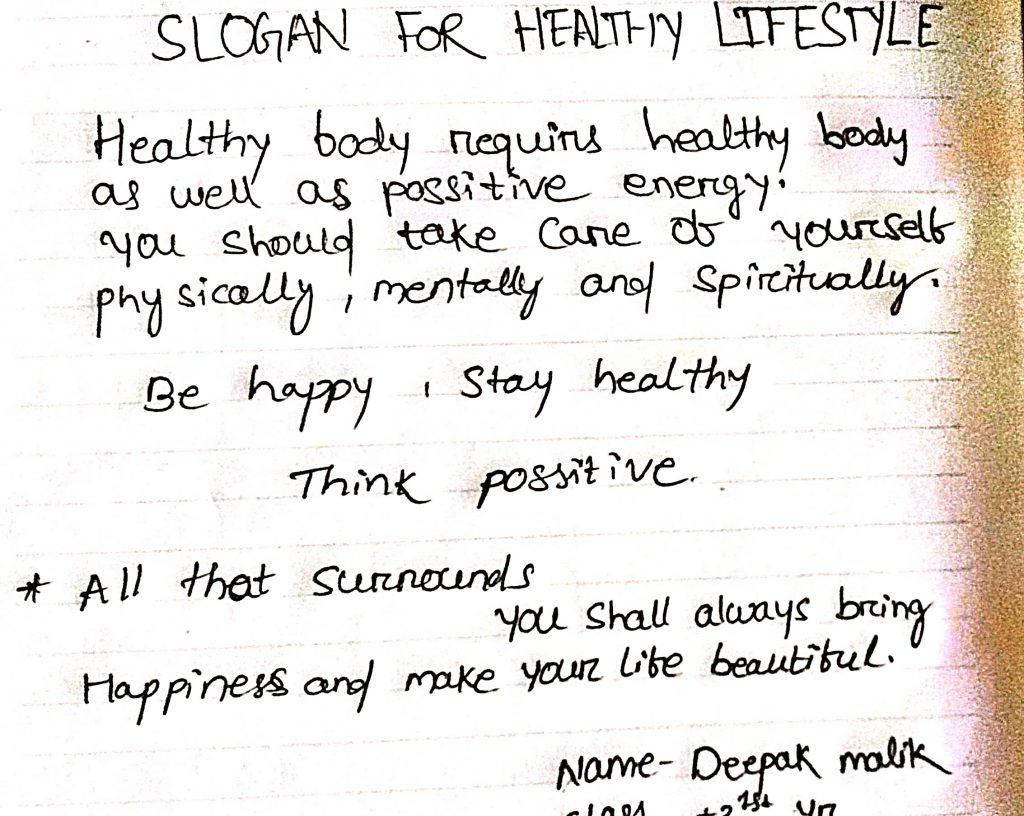 SLOGAN FOR HEALTHY LIFESTYLE
Healthy body requirs healthy body
as well as possitive energy.
you should take care of yourself
physically, mentally and spiritually.
Be happy, Stay healthy
Think possitive.
* All that surrounds
you shall always bring
Happiness and make your life beautiful.
Name- Deepak malik
class +2 1st yr